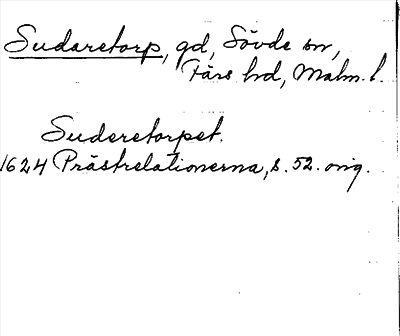 Sudaretorp, gd, Sövde sn,
Färs hd, Malm. l.
Suderetorpet.
1624 Prästrelationerna, s. 52. orig.